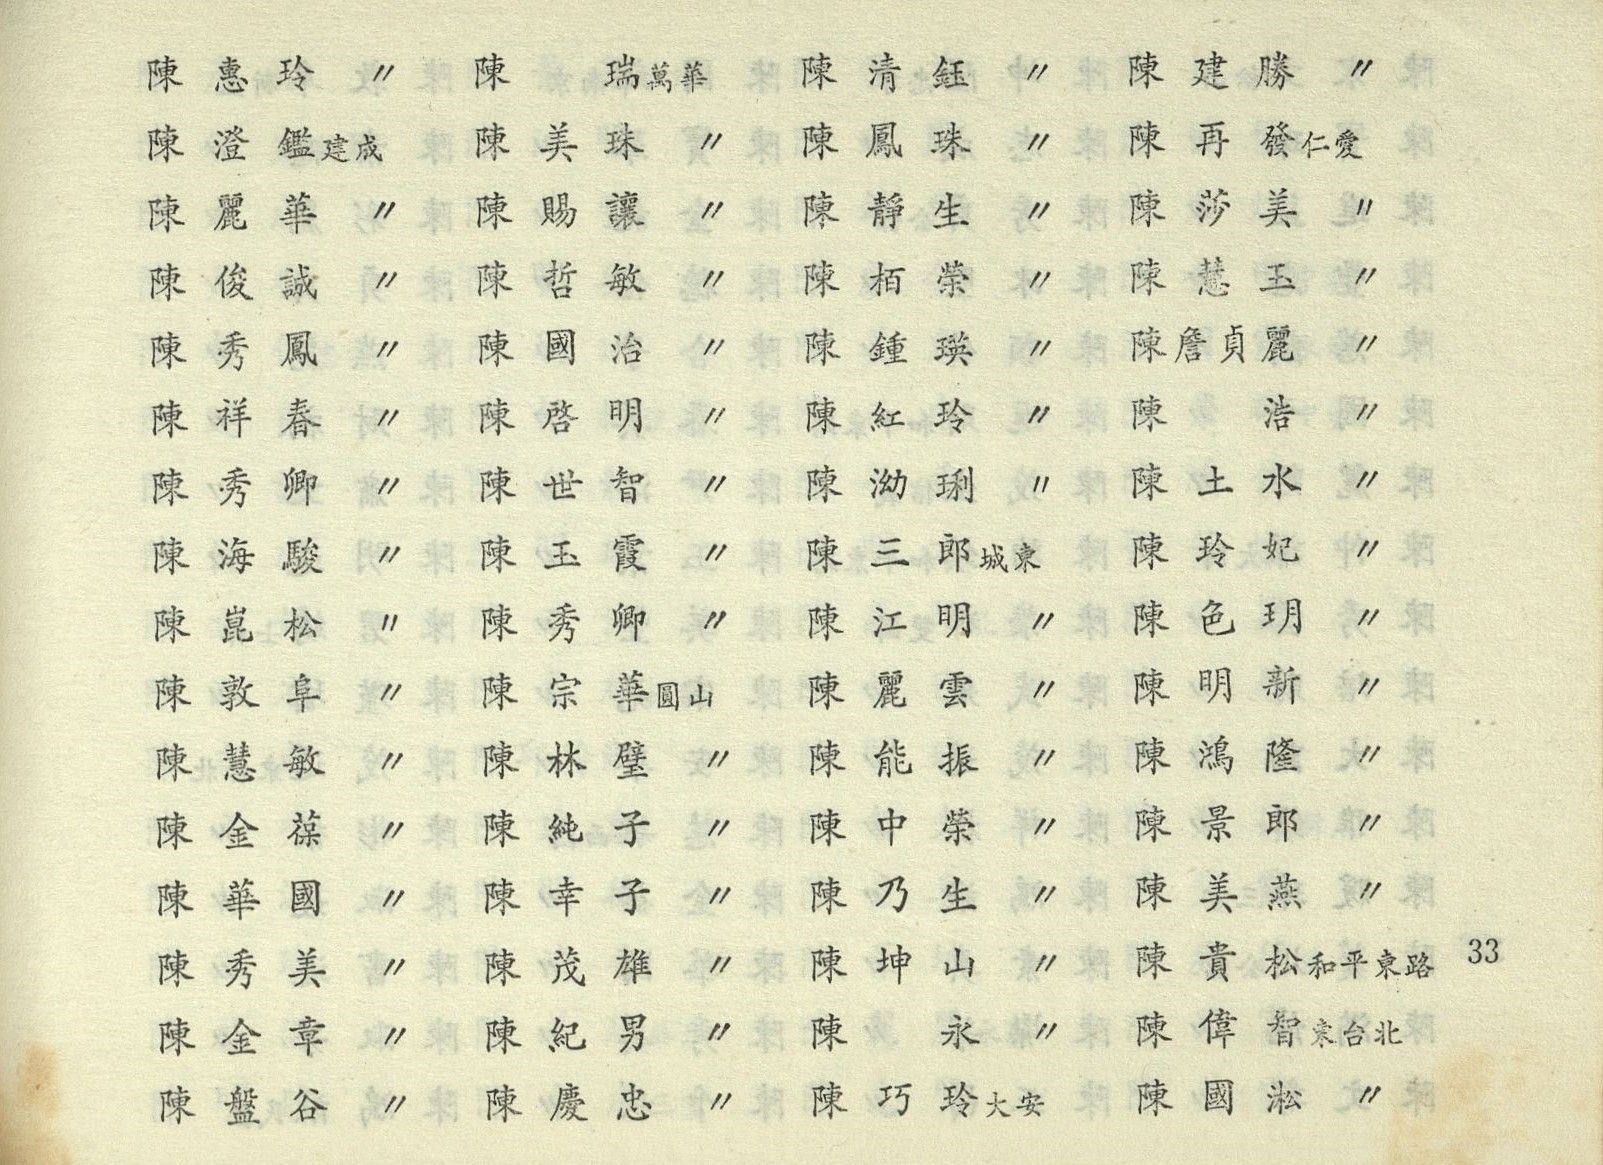 陳惠玲〃
陳澄鑑建成
陳麗華〃
陳俊誠〃
陳秀鳳〃
陳祥春〃
陳秀卿〃
陳海駿〃
陳崑松〃
陳敦阜〃
陳慧敏〃
陳金葆〃
陳華國〃
陳秀美〃
陳金章〃
陳盤谷〃
陳瑞萬華
陳美珠〃
陳賜讓〃
陳哲敏〃
陳國治〃
陳啓明〃
陳世智〃
陳玉霞〃
陳秀卿〃
陳宗華圓山
陳林璧〃
陳純子〃
陳幸子〃
陳茂雄〃
陳紀男〃
陳慶忠〃
陳清鈺〃
陳鳳珠〃
陳靜生〃
陳栢榮〃
陳鍾瑛〃
陳紅玲〃
陳泑琍〃
陳三郎城東
陳江明〃
陳麗雲〃
陳能振〃
陳中榮〃
陳乃生〃
陳坤山〃
陳永〃
陳巧玲大安
陳建勝〃
陳再發仁愛
陳莎美〃
陳慧玉〃
陳詹貞麗〃
陳浩〃
陳土水〃
陳玲妃〃
陳色玥〃
陳明新〃
陳鴻隆〃
陳景郎〃
陳美燕〃
陳貴松和平東路
陳偉智東台北
陳國淞〃
33